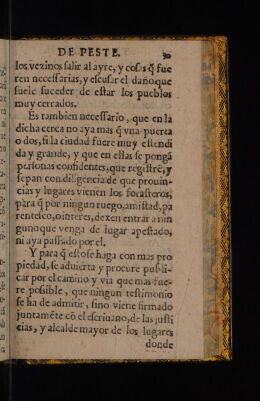 DE PESTE. 30
los vezinos salir al ayre, y cosas q̃ fue
ren necessarias, y escusar el daño que
suele suceder de estar los pueblos
muy cerrados.
Es tambien necessario, que en la
dicha cerca no aya mas q̃ vna puerta
o dos, si la ciudad fuere muy estendi
da y grande, y que en ellas se pongã
personas confidentes, que registrẽ, y
sepan con diligencia de que prouin-
cias y lugares vienen los forasteros,
para q̃ por ningun ruego, amistad, pa
rentesco, o interes, dexen entrar a nin
guno que venga de lugar apestado,
ni aya passado por el.
Y para q̃ esto se haga con mas pro
piedad, se aduierta y procure publi-
car por el camino y via que mas fue-
re possible, que ningun testimonio
se ha de admitir, sino viene firmado
juntamẽte cõ el escriuano, de las justi
cias, y alcalde mayor de los lugares
donde